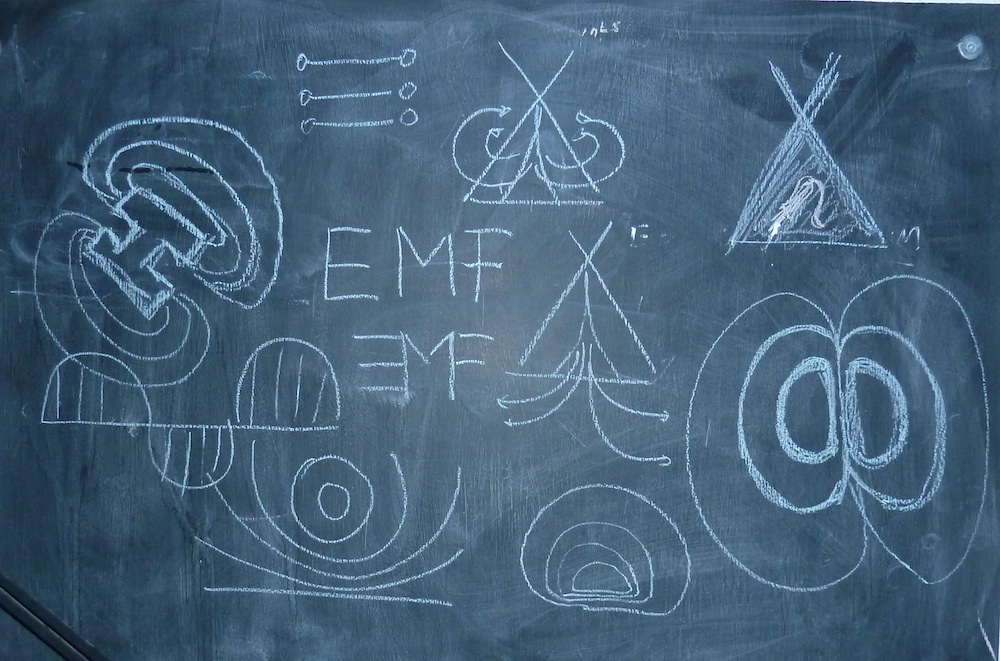 EMF
ƎMF